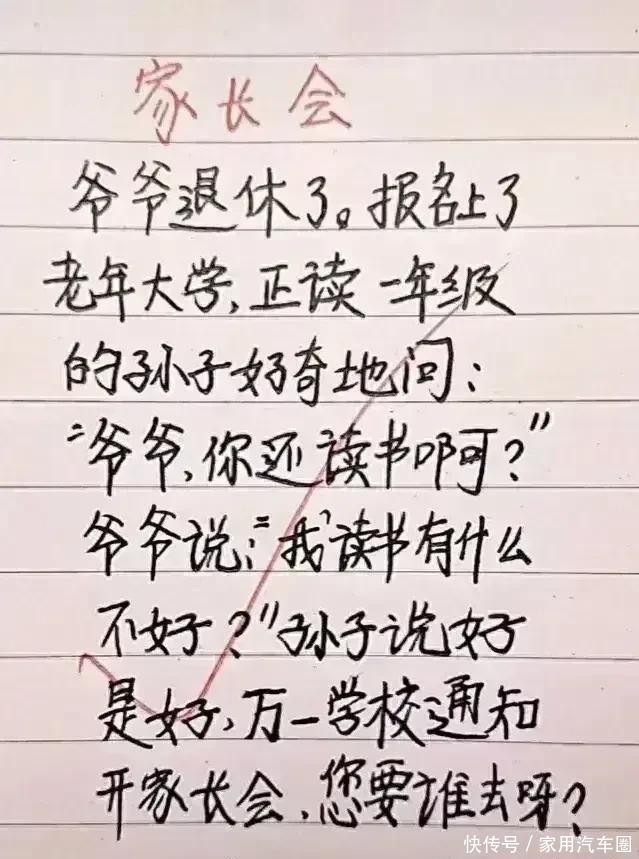 家长会
爷爷退休了。报名上了
老年大学,正读一年级
的孙子好奇地问:
“爷爷,你还读书啊?”
爷爷说:“我读书有什么
不好?”孙子说好
是好,万一学校通知
开家长会,您要谁去呀?
快传号/家用汽车圈